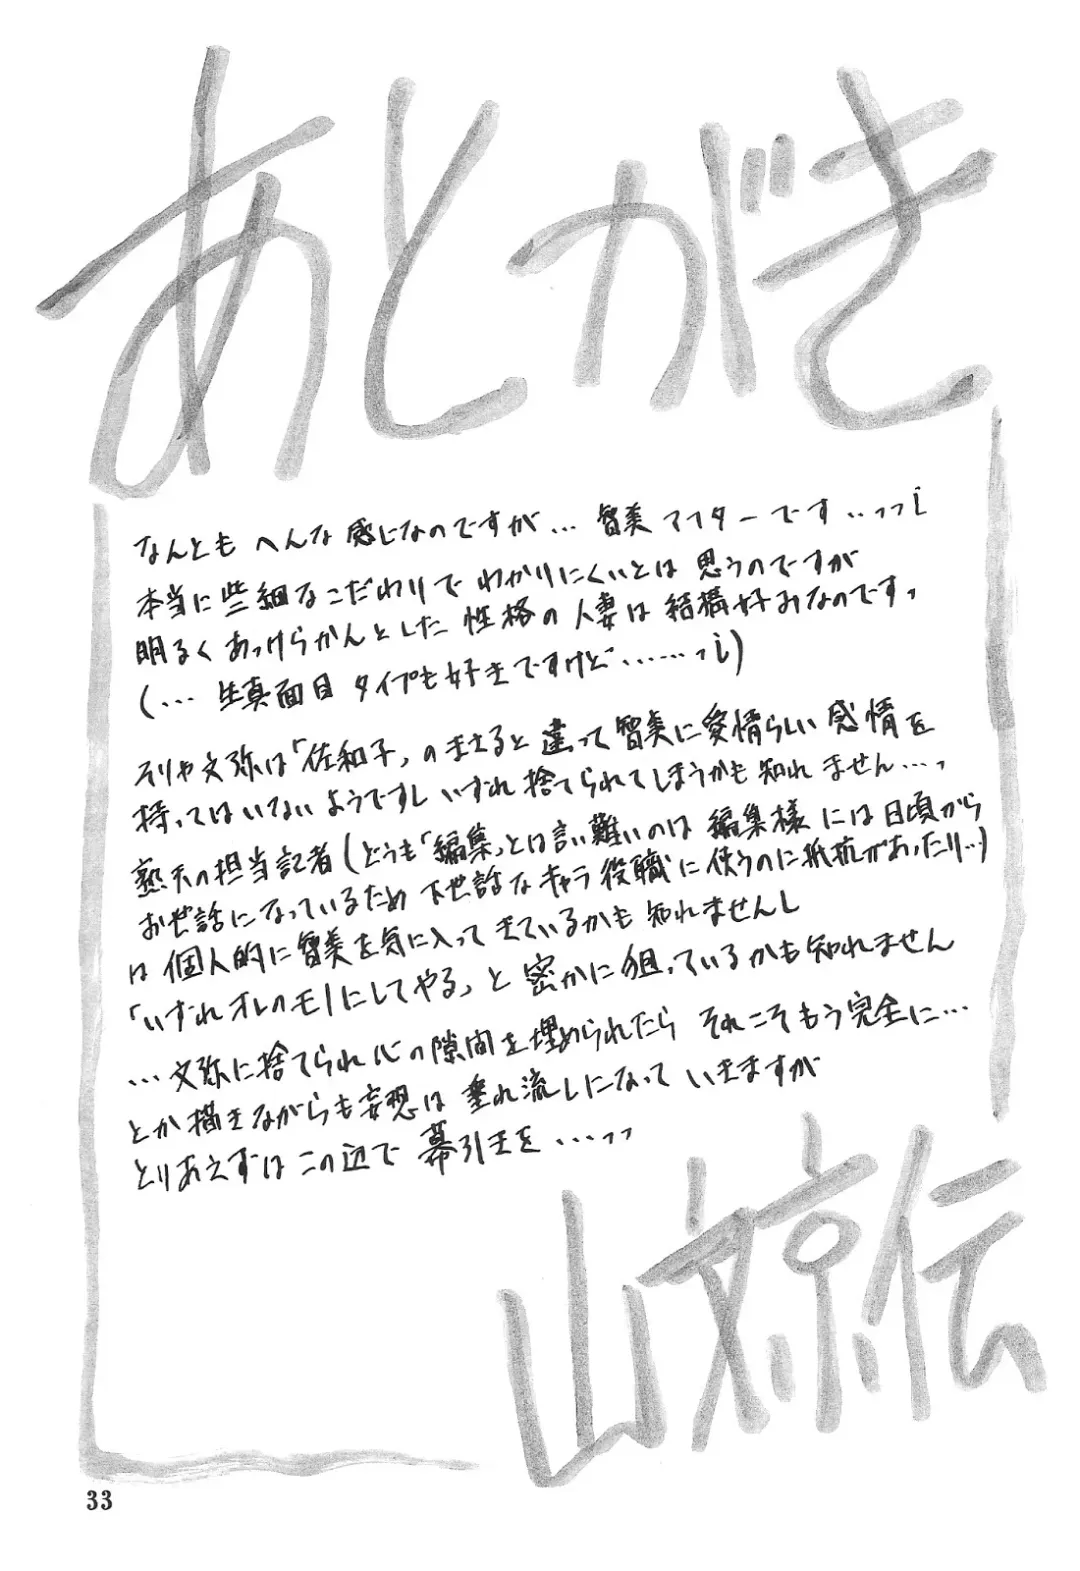 あとがき
なんとも へんな 感じなのですが… 智美 アフターです…っっ
本当に 些細な こだわりで わかりにくいとは 思うのですが
明るく あっけらかんとした 性格の 人妻は 結構好みなのです。
(… 生真面目 タイプも好きですけど……っ)
そりゃ文弥は「佐和子」の まさると 違って 智美に愛情らしい 感情を
持ってはいないようですし いずれ 捨てられてしまうかも 知れません…。
熟天の担当記者(どうも「編集」とは言い難いのは 編集様 には 日頃から
お世話になっているため 下世話な キャラ 役職に 使うのに 抵抗があったり…)
は 個人的に 智美を気に入って きているかも 知れませんし
「いずれ オレのモノにしてやる」と 密かに狙っているかも知れません
… 文弥に捨てられ 心の隙間を埋められたら それこそもう完全に…
とか 描きながらも妄想は 垂れ流しになって いきますが
とりあえずは この辺で 幕引きを …っっ
山文京伝
33